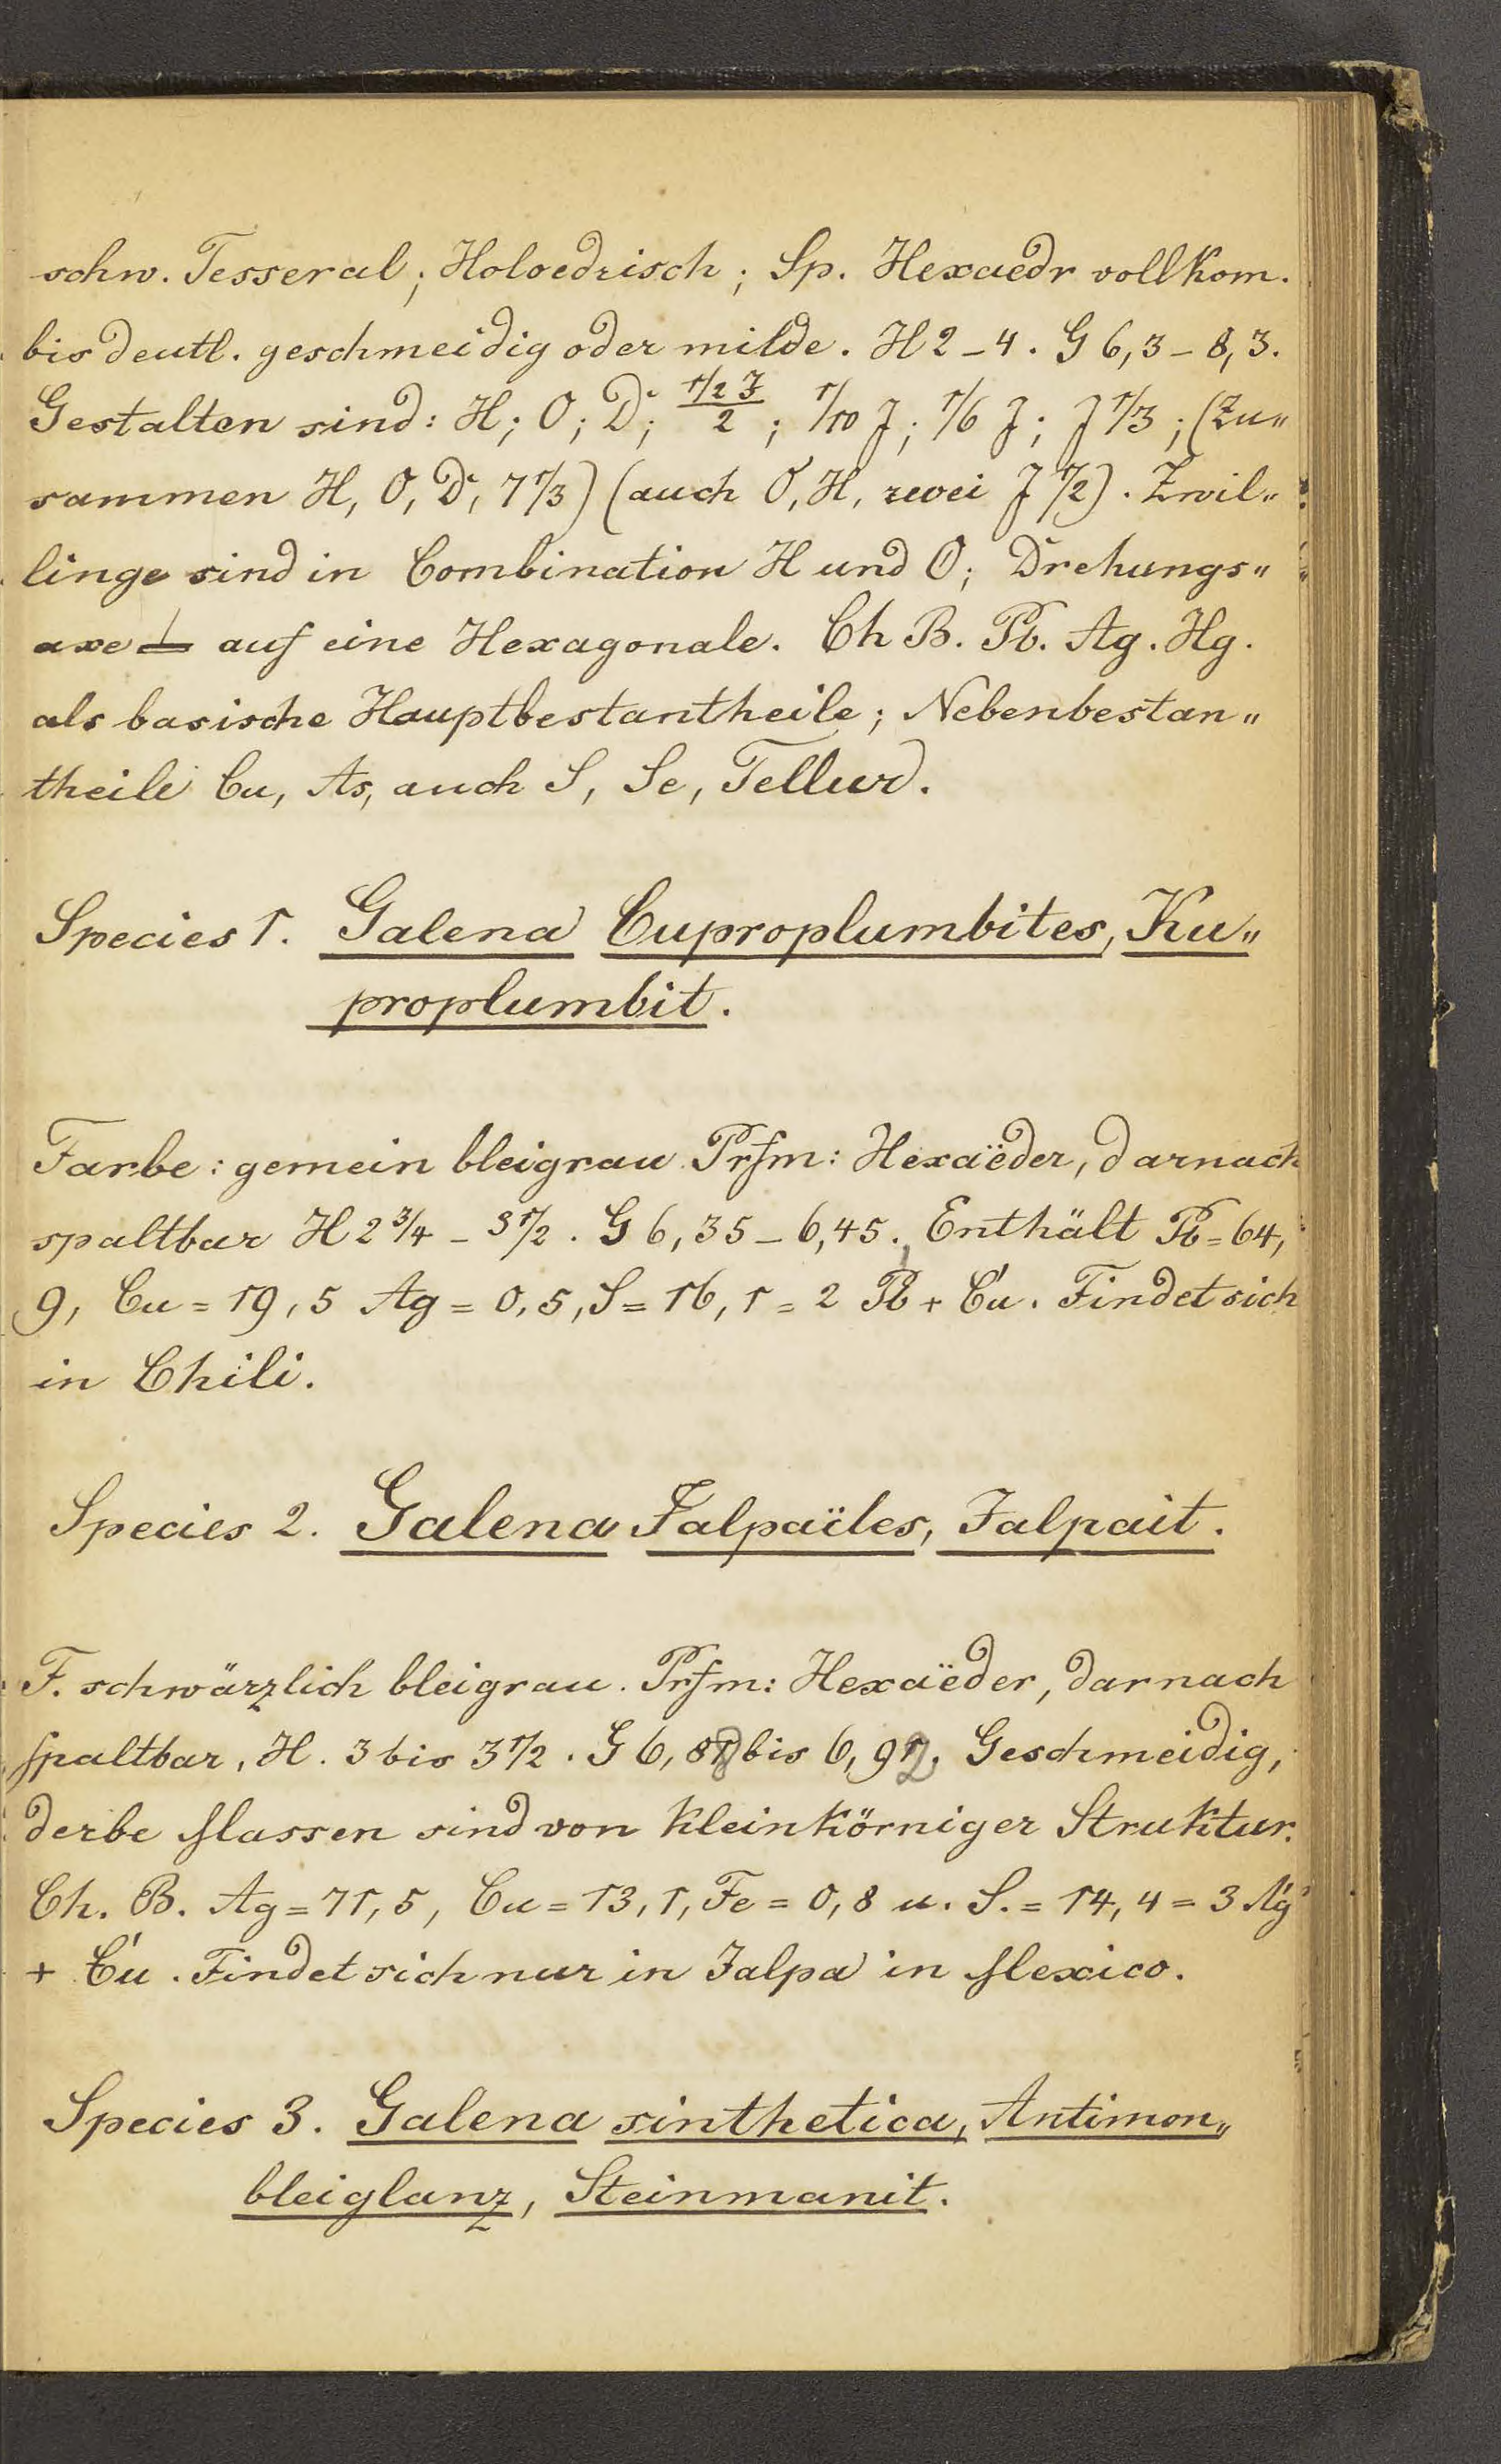 schw. Tesseral; Holoedrisch; Sp. Hexaedr vollkom.
bis deutl. geschmeidig oder milde. H 2 - 4. G 6,3 - 8,3.
Gestalten sind: H; O; D; (1/2 J)/2; 1/10 J; 1/6 J; J 1/3; (Zu„
sammen H, O, D, 7 1/3) (auch O, H, zwei J 1/2). Zwil„
linge sind in Combination H und O; Drehungs„
axe ⊥ auf eine Hexagonale. Ch B. Pb. Ag. Hg.
als basische Hauptbestantheile; Nebenbestan„
theile Cu, As, auch S, Se, Tellur.
Species 1. Galena Cuproplumbites, Ku„
proplumbit.
Farbe: gemein bleigrau. Prfm: Hexaëder, darnach
spaltbar H 2 3/4 - 3 1/2. G 6,35 - 6,45. Enthält Pb = 64,
9, Cu = 19,5 Ag = 0,5, S = 16,1 = 2 Pb + Cu. Findet sich
in Chili.
Species 2. Galena Jalpaïles, Jalpait.
F. schwärzlich bleigrau. Prfm: Hexaëder, darnach
spaltbar, H. 3 bis 3 1/2. G 6,88 bis 6,92, Geschmeidig,
derbe Massen sind von kleinkörniger Struktur.
Ch. B. Ag = 71,5, Cu = 13,1, Fe = 0,8 u. S. = 14,4 = 3 Ag
+ Cu. Findet sich nur in Jalpa in Mexico.
Species 3. Galena sinthetica, Antimon„
bleiglanz, Steinmanit.